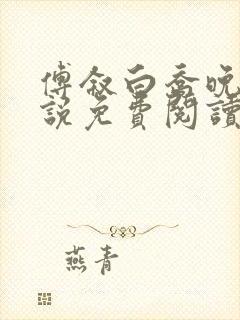 傅叙白喬晚
說免費閱讀
燕青